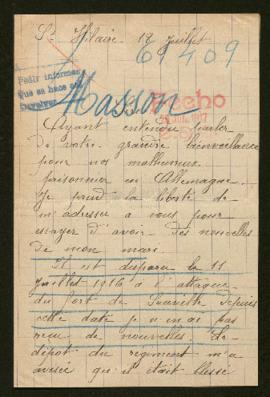 St Hilaire 12 Juillet
61409
Pedir informes
que se hace
Devolver
Masson
Hecho
1917
Ayant entendu parler
de votre grande bienveillance
pour nos malheureux
prisonnier en Allemagne
Je prend la liberté de
m'adresser a vous pour
essayer d'avoir des nouvelles
de mon mari
Il est disparu le 11
Juillet 1916 à l'attaque
du fort de Souville depuis
cette date je n'ai pas
reçu de nouvelles. Le
dépôt du régiment m'a
avisée qu'il était blessé